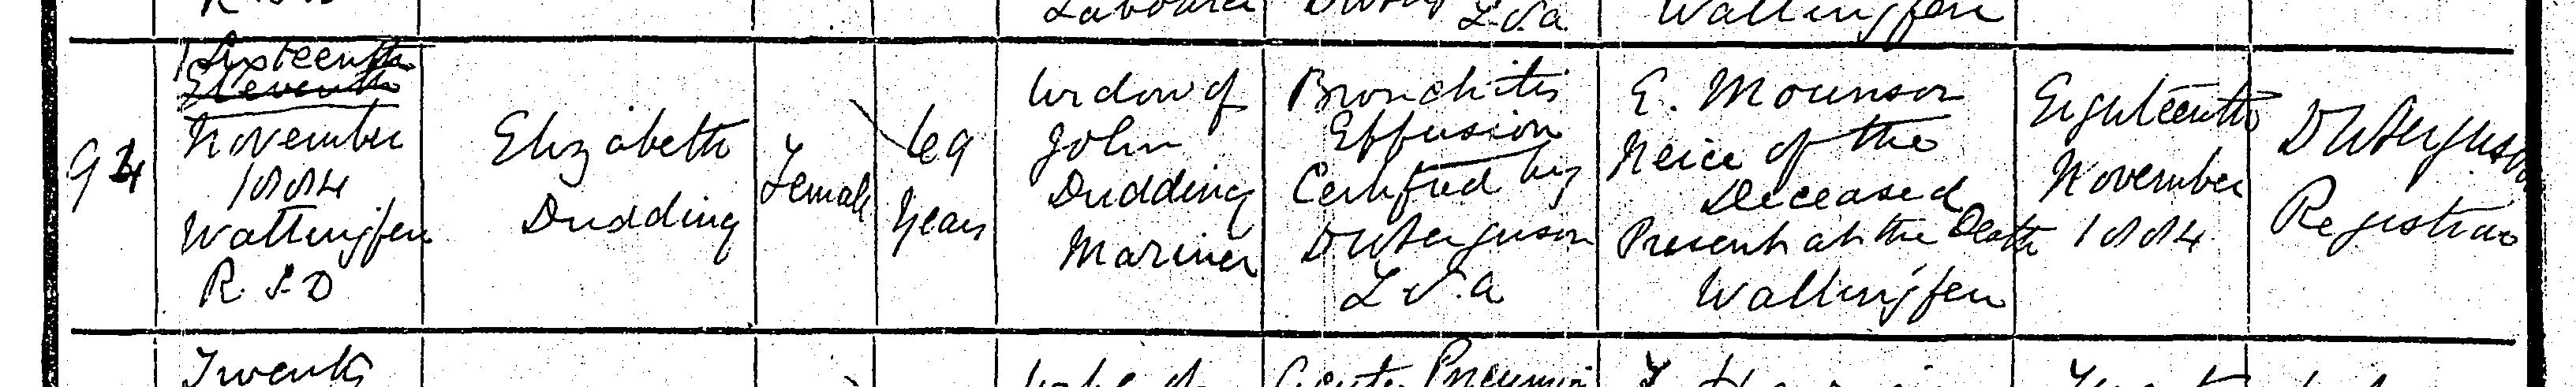 Labourer
L.S.A
Wallingfen
94
Sixteenth
Eleventh
November
1884
Wallingfen
R.S.D
Elizabeth
Dudding
Female
69
Years
Widow of
John
Dudding
Mariner
Bronchitis
Effusion
Certified by
DW Ferguson
L.S.A
E. Mounson
Neice of the
Deceased
Present at the Death
Wallingfen
Eighteenth
November
1884
DW Ferguson
Registrar
Twenty
Wife of
Acute Pneumonia